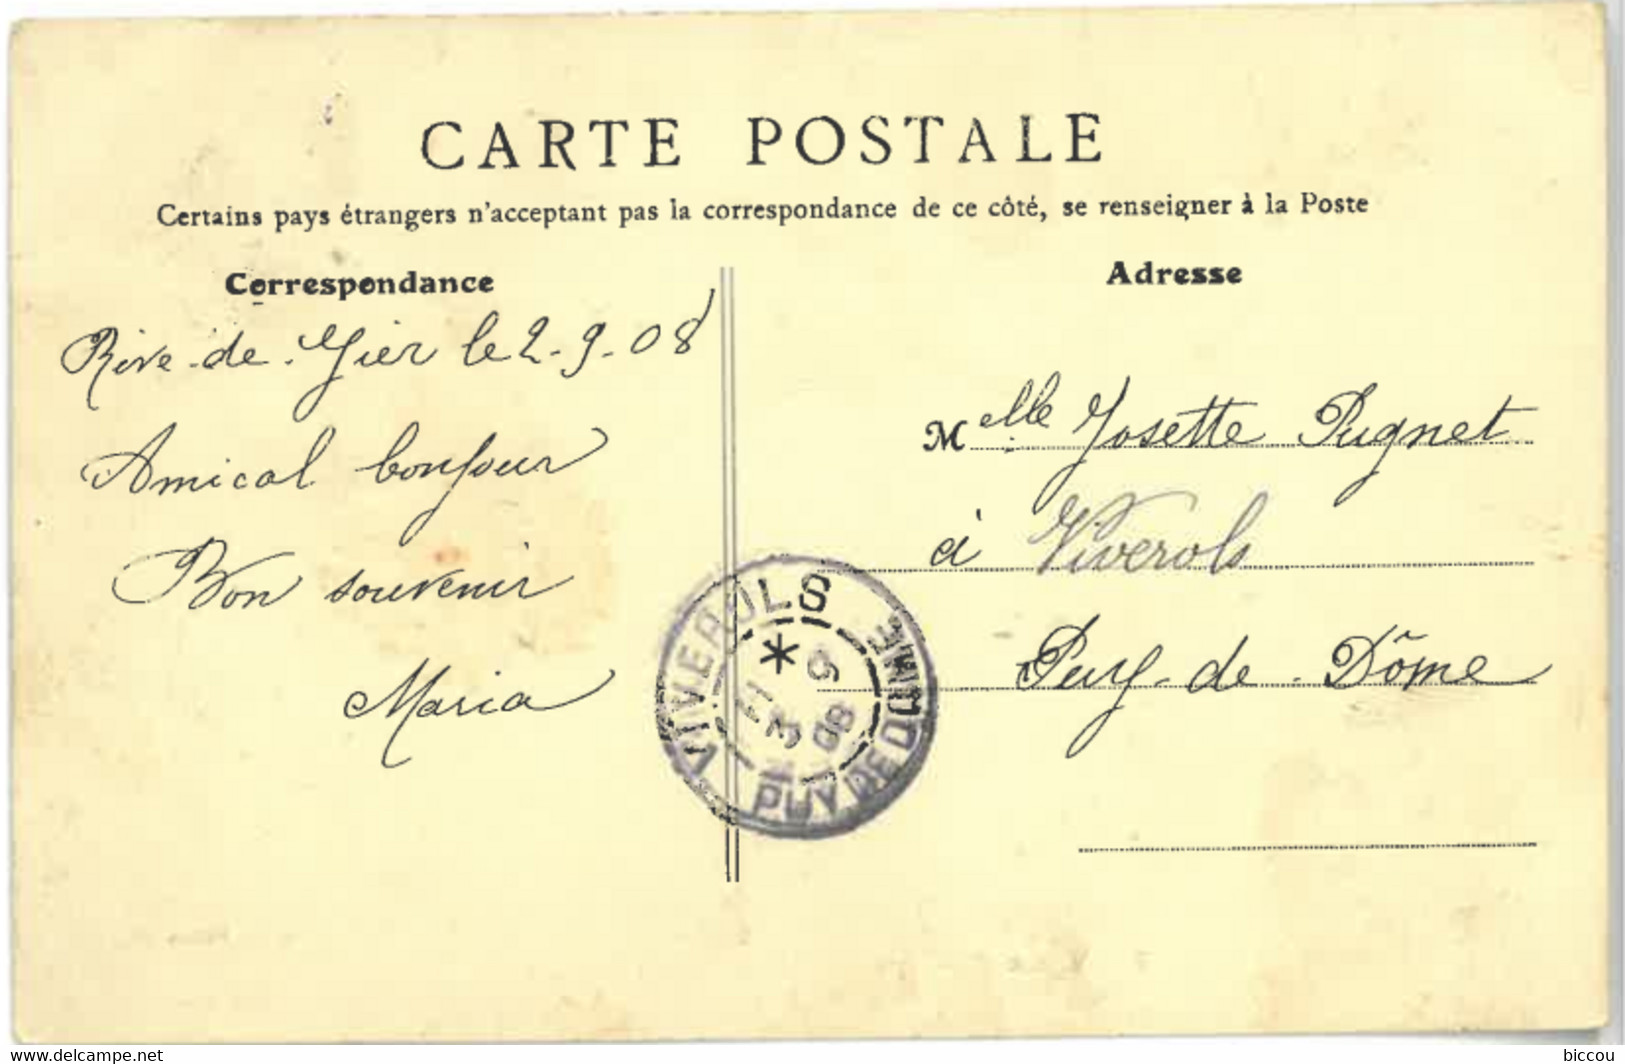 CARTE POSTALE
Certains pays étrangers n'acceptant pas la correspondance de ce côté, se renseigner à la Poste
Correspondance
Rive-de-Gier le 2-9-08
Amical bonjour
Bon souvenir
Maria
Adresse
Melle Josette Pugnet
à Viverols
Puy-de-Dôme
VIVEROLS
*
3 9
08
PUY DE DOME
www.delcampe.net
biccou